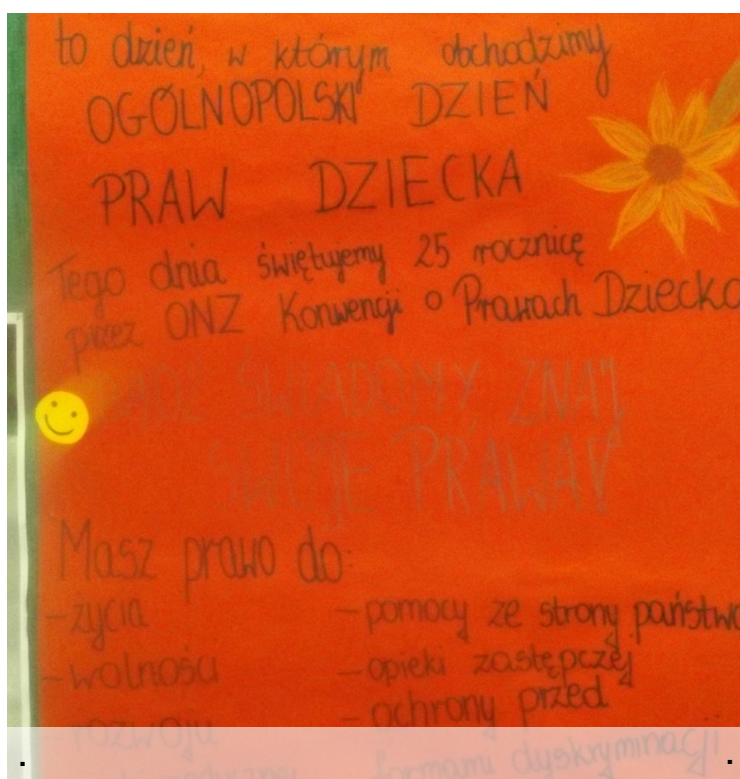 to dzień, w którym obchodzimy
OGÓLNOPOLSKI DZIEŃ
PRAW DZIECKA
Tego dnia świętujemy 25 rocznicę
przez ONZ Konwencji o Prawach Dziecka
BĄDŹ ŚWIADOMY ZNAJ
SWOJE PRAWA
Masz prawo do:
- życia
- wolności
- rozwoju
- pomocy ze strony państwa
- opieki zastępczej
- ochrony przed
formami dyskryminacji